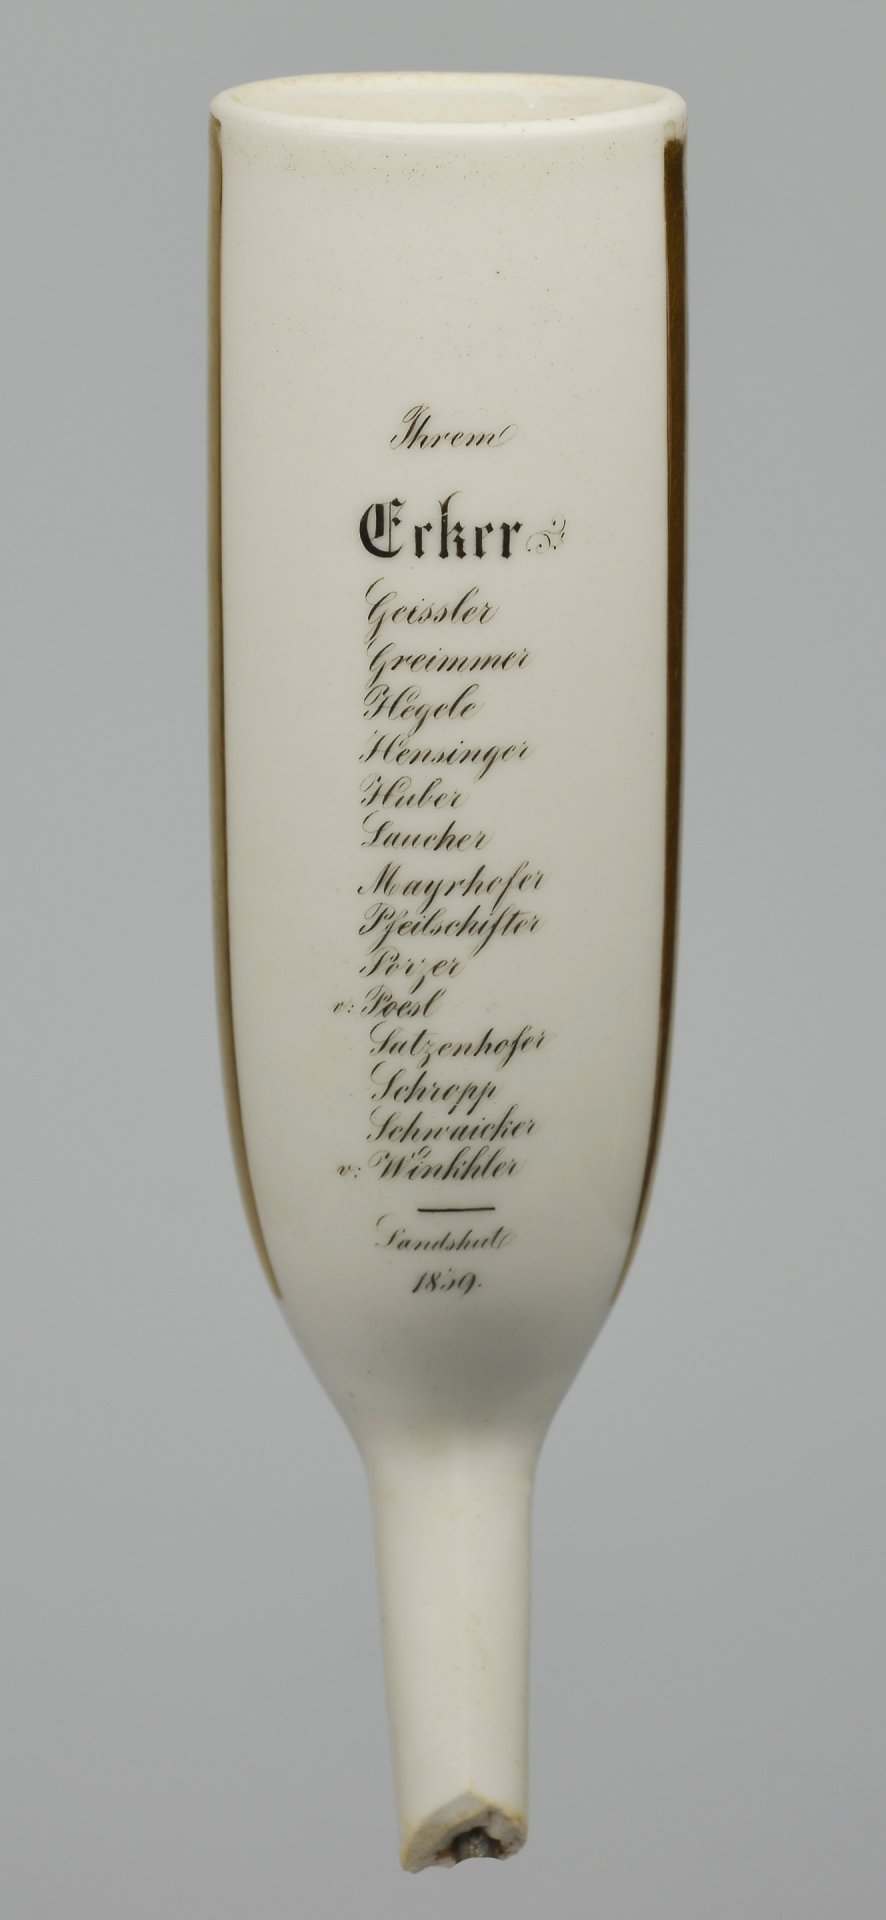 Ihrem
Ecker
Geissler
Greimmer
Hegele
Hensinger
Huber
Laucher
Mayrhofer
Pfeilschifter
Porzer
v: Poesl
Sutzenhofer
Schropp
Schwaicker
v: Winkhler
Landshut
1859.